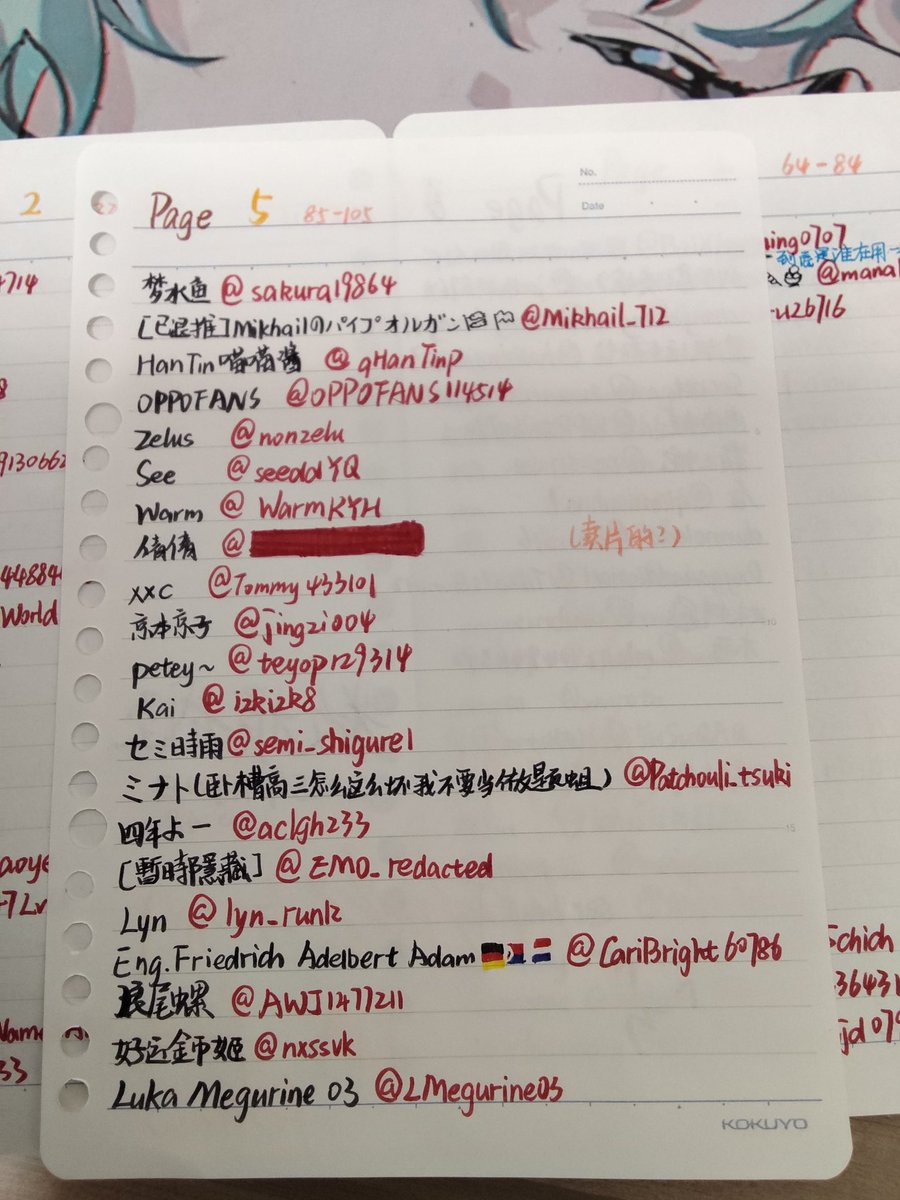 2
Page 5 85-105
No.
Date
64-84
梦水鱼 @sakura19864
[已退推]Mikhailのパイプオルガン @Mikhail_712
HanTin喵喵酱 @qHanTinp
OPPOFANS @OPPOFANS114514
Zelus @nonzelu
See @seeddYQ
Warm @WarmKYH
倩倩 @ (卖片的?)
xxc @Tommy433101
京本京子 @jingzi004
petey~ @teyop129314
Kai @izkizk8
セミ時雨@semi_shigure1
ミナト(卧槽高三怎么这么坏我不要当做题蛆) @Patchouli_tsuki
四年よ一 @aclgh233
[暫時隱藏] @EMO_redacted
Lyn @lyn_runk
Eng.Friedrich Adelbert Adam @CariBright60786
狼尾螺 @AWJ1477211
好运金币姬 @nxssvk
Luka Megurine 03 @LMegurine03
KOKUYO
4714
9130662
44884
World
aoye
33
ing0707
到底是谁在用一
@mana
u2b716
Schich
36431
jd079
10
15